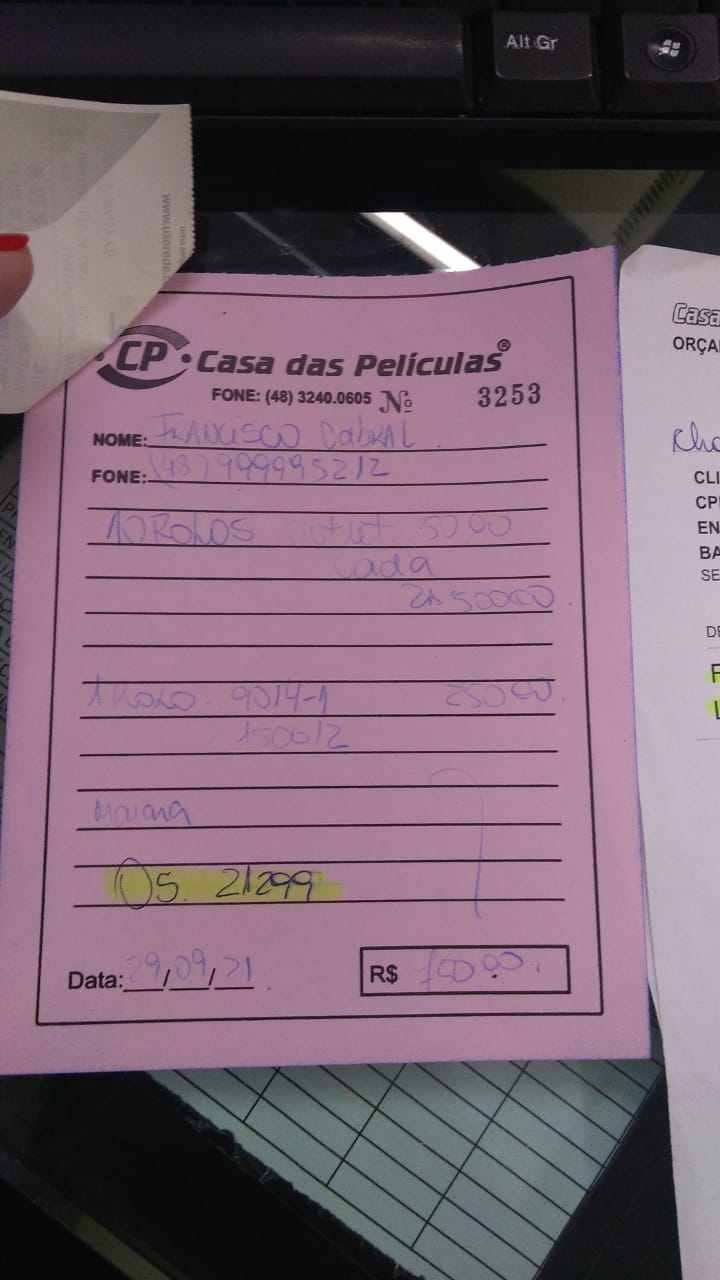 Alt Gr
www.userede.
CP Casa das Películas®
FONE: (48) 3240.0605 Nº 3253
NOME: FRANCISCO CABRAL
FONE: (48) 999995212
10 ROLOS outlet 50,00
cada
500,00
1 ROLO 9014-1 250,00
1500/2
Maiara
OS. 21299
Data: 29/09/21
R$ 750,00
Casa
ORÇA
CLI
CP
EN
BA
SE
DE